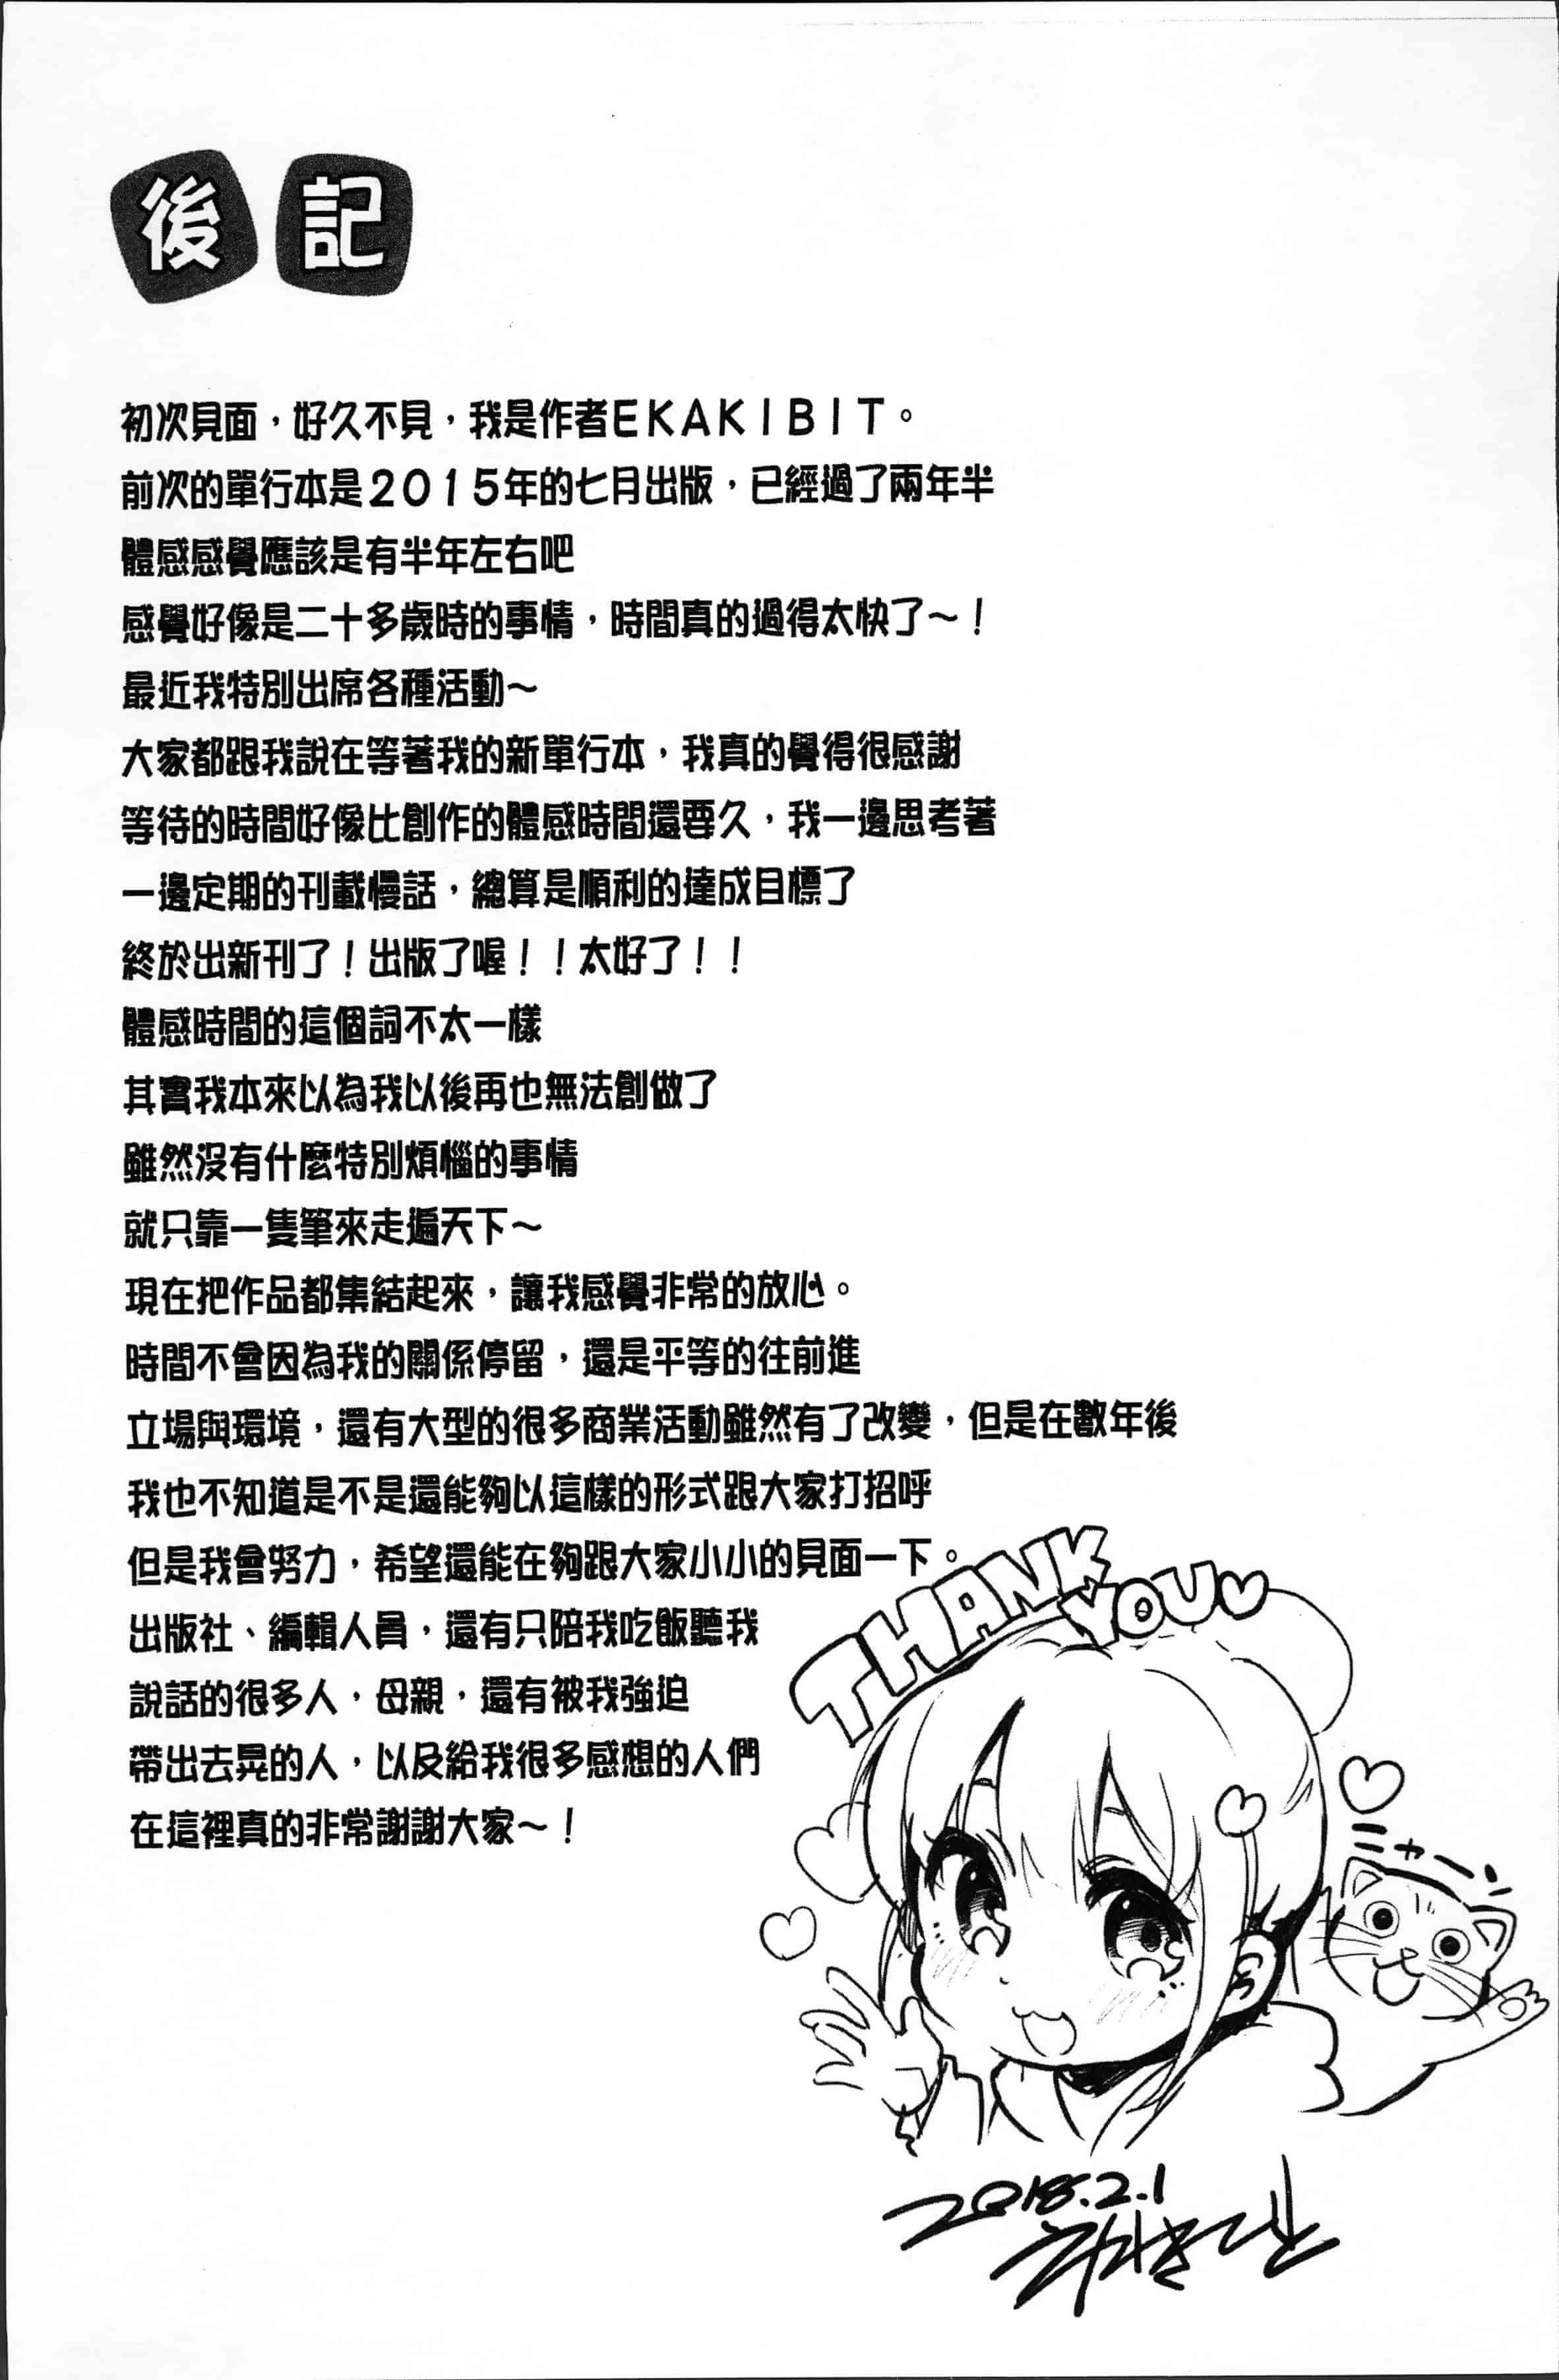 後記
初次見面，好久不見，我是作者EKAKIBIT。
前次的單行本是2015年的七月出版，已經過了兩年半
體感感覺應該是有半年左右吧
感覺好像是二十多歲時的事情，時間真的過得太快了～！
最近我特別出席各種活動～
大家都跟我說在等著我的新單行本，我真的覺得很感謝
等待的時間好像比創作的體感時間還要久，我一邊思考著
一邊定期的刊載慢話，總算是順利的達成目標了
終於出新刊了！出版了喔！！太好了！！
體感時間的這個詞不太一樣
其實我本來以為我以後再也無法創做了
雖然沒有什麼特別煩惱的事情
就只靠一隻筆來走遍天下～
現在把作品都集結起來，讓我感覺非常的放心。
時間不會因為我的關係停留，還是平等的往前進
立場與環境，還有大型的很多商業活動雖然有了改變，但是在數年後
我也不知道是不是還能夠以這樣的形式跟大家打招呼
但是我會努力，希望還能在夠跟大家小小的見面一下。
出版社、編輯人員，還有只陪我吃飯聽我
說話的很多人，母親，還有被我強迫
帶出去晃的人，以及給我很多感想的人們
在這裡真的非常謝謝大家～！
THANK
YOU♥
ニャーン
2018.2.1